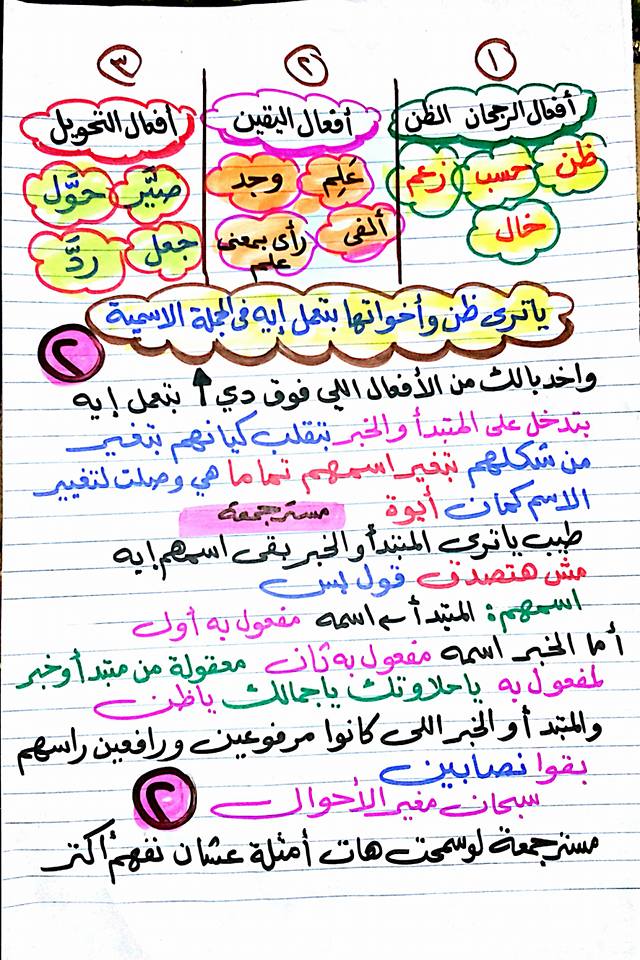 ١
أفعال الرجحان الظن
ظن حسب زعم
خال
٢
أفعال اليقين
عَلِم وجد
ألفى رأى بمعنى علم
٣
أفعال التحويل
صيَّر حوَّل
جعل ردَّ
ياترى ظن وأخواتها بتعمل إيه فى الجملة الاسمية
٢
واخد بالك من الأفعال اللي فوق دي ↑ بتعمل إيه
بتدخل على المبتدأ والخبر بتقلب كيانهم بتغير
من شكلهم بتغير اسمهم تماما هي وصلت لتغيير
الاسم كمان أيوة مستر جمعة
طيب ياترى المبتدأ والخبر بقى اسمهم إيه
مش هتصدق قول بس
اسمهم: المبتدأ اسمه مفعول به أول
أما الخبر اسمه مفعول به ثان معقولة من مبتدأ وخبر
لمفعول به ياحلاوتك ياجمالك ياظن
والمبتدأ والخبر اللى كانوا مرفوعين ورافعين راسهم
بقوا نصابين
سبحان مغير الأحوال ٢
مستر جمعة لو سمحت هات أمثلة عشان نفهم أكتر